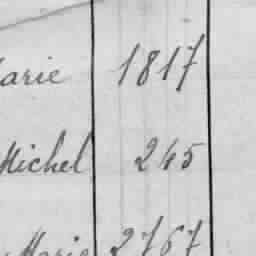 arie 1817
Michel 245
Marie 2767